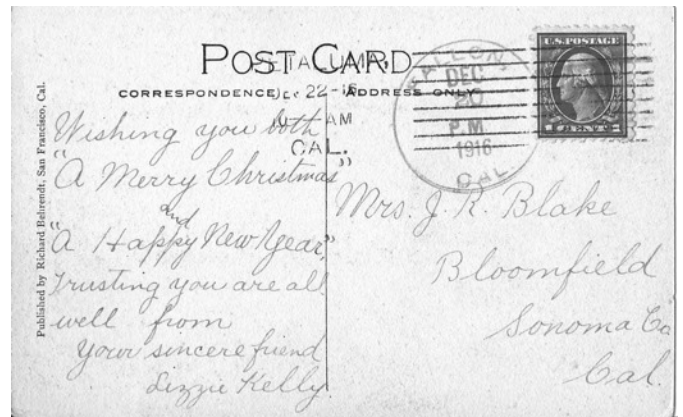 POST CARD
CORRESPONDENCE
ADDRESS ONLY
PETALUMA,
DEC 22
AM
CAL.
FALLON,
DEC
20
P.M
1916
CAL
U.S. POSTAGE
CENTS
Published by Richard Behrendt, San Francisco, Cal.
Wishing you both
"A Merry Christmas"
and
"A Happy New Year,"
Trusting you are all
well from
your sincere friend
Lizzie Kelly
Mrs. J. R. Blake
Bloomfield
Sonoma Co
Cal.